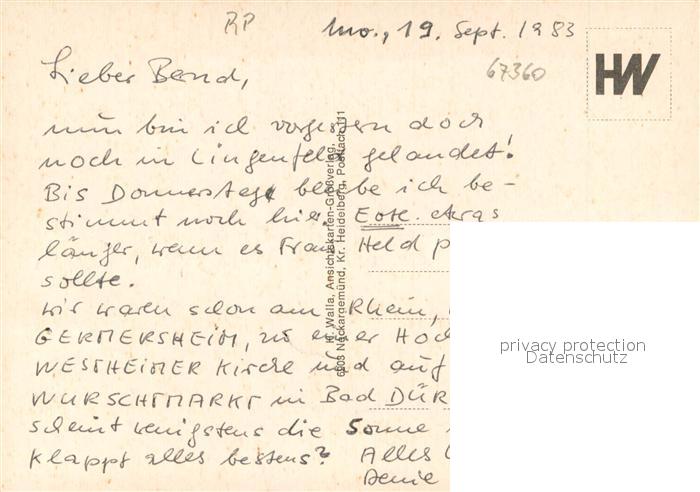 RP
Mo., 19. Sept. 1983
67360
HW
Lieber Bernd,
nun bin ich vorgestern doch
noch in Lingenfeld gelandet!
Bis Donnerstag bleibe ich be-
stimmt noch hier. Evtl. etwas
länger, wenn es Frau Held p
sollte.
Wir waren schon am Rhein,
GERMERSHEIM, wo Hoc
WESTHEIMER Kirche und auf
WURSCHTMARKT in Bad DÜR
scheint wenigstens die Sonne
klappt alles bestens? Alles
Deine
H. Walla, Ansichtskarten-Großverlag,
6903 Neckargemünd, Kr. Heidelberg, Postfach 111
privacy protection
Datenschutz